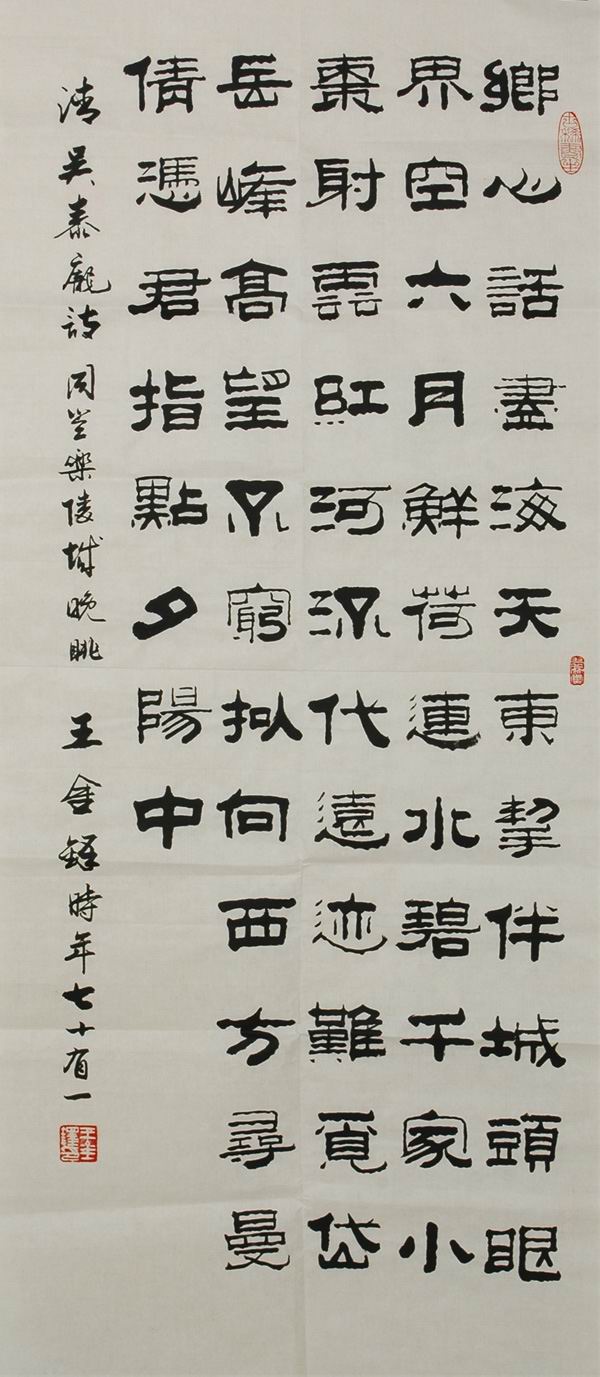 鄉心話盡海天東挈伴城頭眼
界空六月鮮荷連水碧千家小
棗射雲紅河流代遠迹難覓岱
岳峰高望不窮拟向西方尋曼
倩憑君指點夕陽中
清吴泰龐诗同登樂陵城晚眺 王金鐸時年七十有一